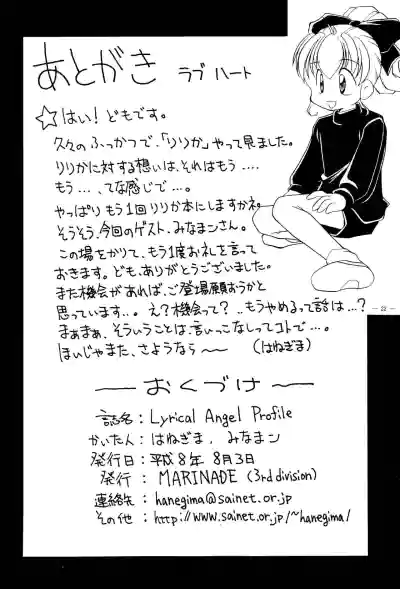 あとがき ラブ ハート
☆はい！どもです。
久々のふっかつで、「りりか」やって見ました。
りりかに対する想いは、それはもう‥‥
もう‥‥、てな感じで‥‥。
やっぱりもう1回りりか本にしますかネ。
そうそう、今回のゲスト、みなまンさん。
この場をかりて、もう1度お礼を言って
おきます。ども、ありがとうございました。
また機会があれば、ご登場願おうかと
思っています‥。え？機会って？‥もうやめるって話は‥？
まぁまぁ、そういうことは、言いっこなしってコトで‥‥。
ほいじゃまた、さようなら〜〜 （はねぎま）
— 22 —
—おくづけ—
誌名：Lyrical Angel Profile
かいた人：はねぎま，みなまン
発行日：平成8年 8月3日
発行：MARINADE (3rd division)
連絡先：hanegima@sainet.or.jp
その他：http://www.sainet.or.jp/~hanegima/